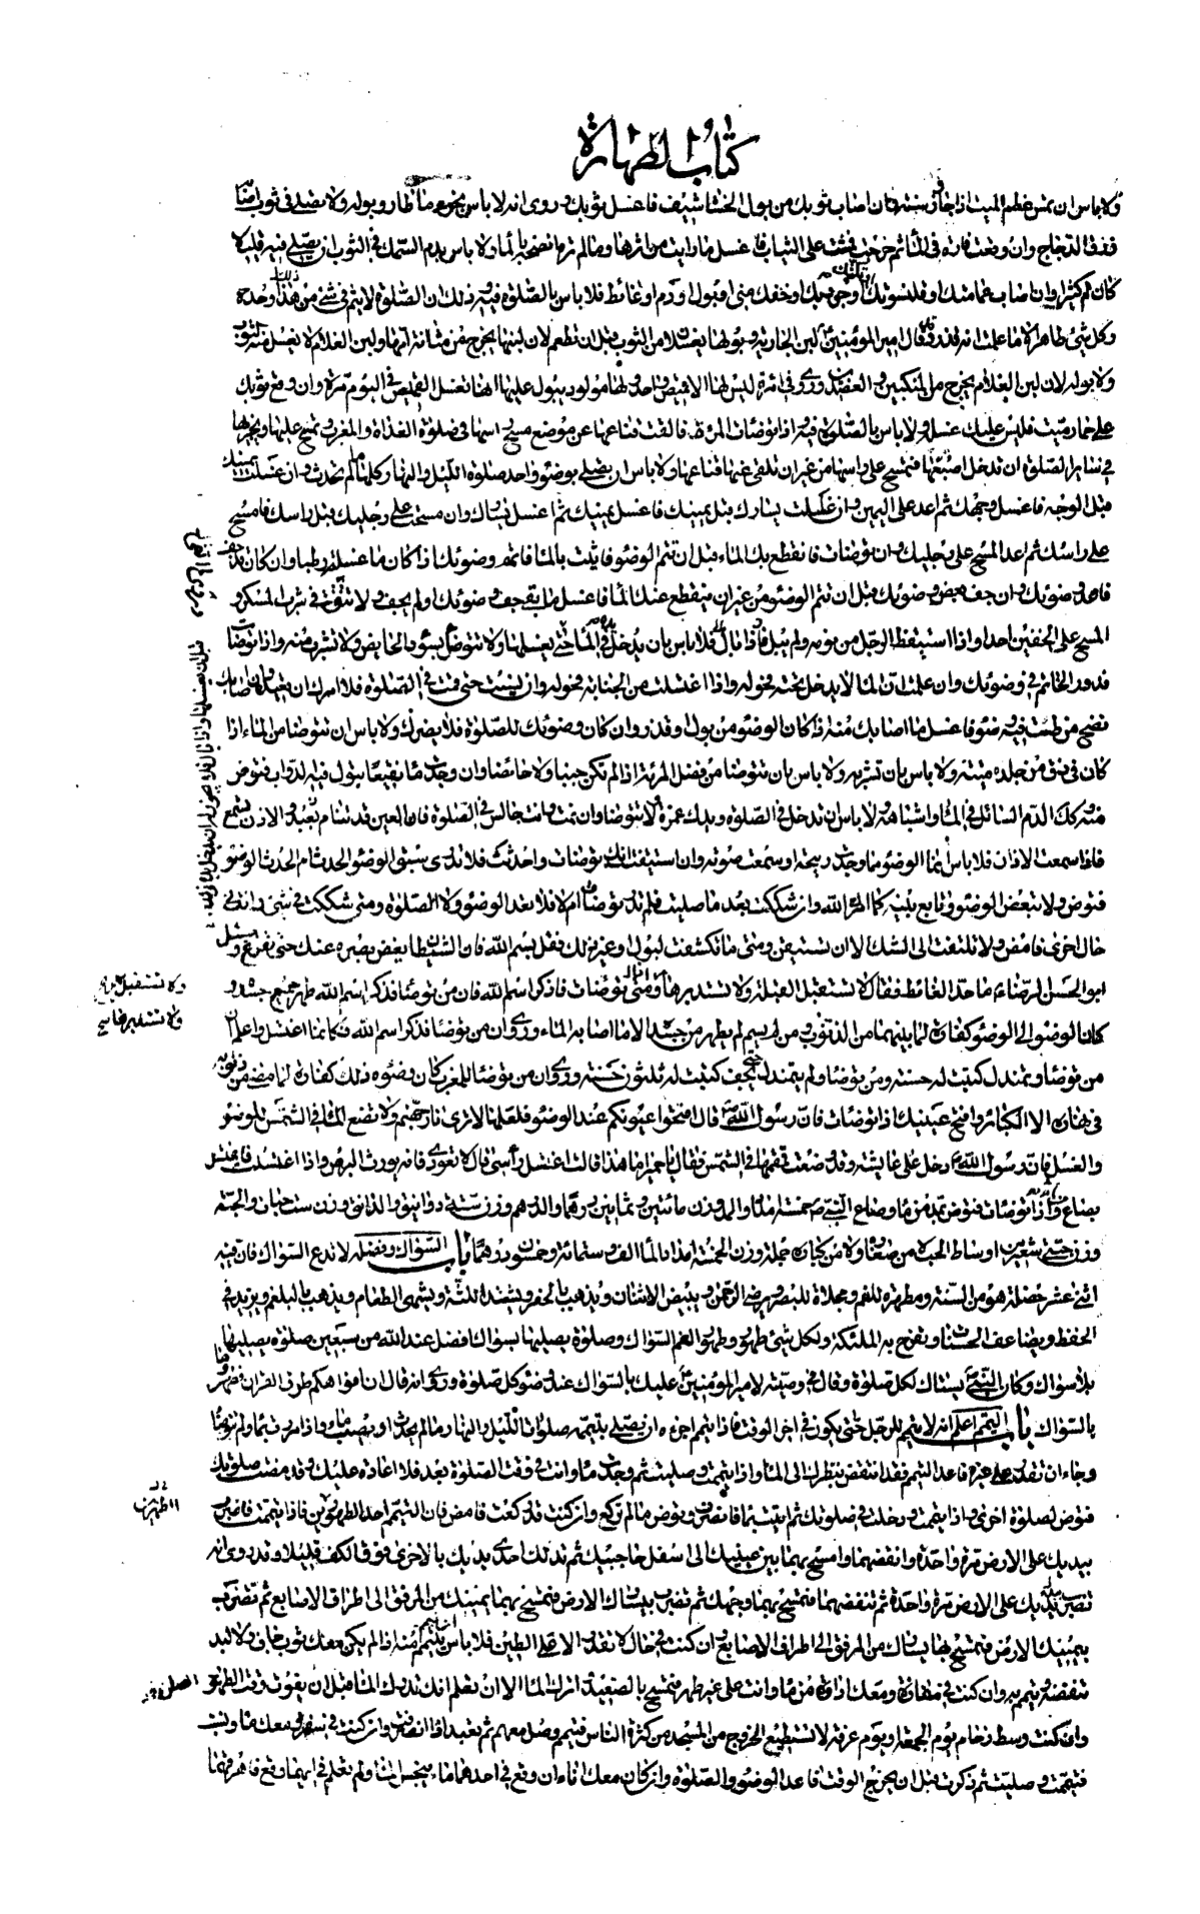 كتاب الطهارة
ولا باس ان تمس عظم الميت اذا جاز سنة فان اصاب ثوبك من بول الخشاشيف فاغسل ثوبك و روى انه لا باس بخرء ما طار وبوله ولا تصل في ثوب اصابه
ذرق الدجاج وان وقعت فارة في الماء ثم خرجت فمشت على الثياب فاغسل ما رايت من اثرها وما لم تره انضحه بالماء ولا باس بدم السمك في الثوب ان يصلي فيه قليلا
كان ام كثيرا وان اصاب عمامتك او قلنسوتك او تكتك او جوربك او خفك مني او بول او دم او غائط فلا باس بالصلوة فيه و ذلك ان الصلوة لا يتم في شئ من هذا وحده
وكل شئ طاهر الا ما علمت انه قذر قال امير المؤمنين لبن الجارية وبولها يغسلان من الثوب قبل ان تطعم لان لبنها يخرج من مثانة امها ولبن الغلام لا يغسل منه الثوب
ولا بوله لان لبن الغلام يخرج من المنكبين و العضدين وروى في امرئة ليس لها الا قميص واحد ولها مولود يبول عليها انها تغسل القميص في اليوم مرة وان وقع ثوبك
على حمار ميت فليس عليك غسله ولا باس بالصلوة فيه و اذا توضات المرئة القت قناعها عن موضع مسح راسها في صلوة الغداة والمغرب و تمسح عليها ويجزيها
في سائر الصلوة ان تدخل اصبعها فتمسح على راسها من غير ان تلقى عنها قناعها ولا باس ان يصلي بوضوء واحد صلوة الليل والنهار كلها ما لم يحدث وان غسلت يمينك
قبل الوجه فاغسل وجهك ثم اعد على اليمين وان غسلت يسارك قبل يمينك فاغسل يمينك ثم اغسل يسارك وان مسحت على رجليك قبل راسك فامسح
على راسك ثم اعد المسح على رجليك وان توضات فانقطع بك الماء قبل ان تتم الوضوء فاتيت بالماء فاتمم وضوئك اذا كان ما غسلته رطبا وان كان قد جف
فاعد وضوئك وان جف بعض وضوئك قبل ان تتم الوضوء من غير ان ينقطع عنك الماء فاغسل ما بقى جف وضوئك او لم يجف ولا تتق في شرب المسكر و
المسح على الخفين احدا واذا استيقظ الرجل من نومه ولم يبل فلا باس بان يدخل يده في الماء حتى يغسلها ولا تتوضأ بسؤر الحايض ولا تشرب منه واذا توضات
فدور الخاتم في وضوئك وان علمت ان الماء لا يدخل تحته فحوله واذا اغتسلت من الجنابة فحوله وان نسيت حتى قمت في الصلوة فلا امرك ان تعيد وان اصابك
نضح من طشت فيه وضوء فاغسل ما اصابك منه اذا كان الوضوء من بول او قذر وان كان وضوئك للصلوة فلا يضرك ولا باس ان تتوضا من الماء اذا
كان في زق من جلدة ميتة ولا باس بان تشربه ولا باس بان تتوضا من فضل المرئة اذا لم تكن جنبا ولا حائضا وان وجدت ماء نقيعا يبول فيه الدواب فتوض
منه وكذلك الدم السائل في الماء واشباهه ولا باس ان تدخل في الصلوة ويدك غمرة ولا تتوضا وان نمت وانت جالس في الصلوة فان العين قد تنام بعبد والاذن تسمع
فاذا سمعت الاذان فلا باس انما الوضوء مما وجدت ريحه او سمعت صوته وان استيقنت انك توضات واحدثت فلا تدرى سبق الوضوء الحدث ام الحدث الوضوء
فتوض ولا تبعض الوضوء وتابع بينه كما امر الله وان شككت بعد ما صليت فلم تدر توضات ام لا فلا تعد الوضوء ولا الصلوة ومتى شككت في شئ وانت في
حال اخرى فامض ولا تلتفت الى الشك الا ان تستيقن ومتى ما تكشفت لبول او غير ذلك فقل بسم الله فان الشيطان يغض بصره عنك حتى تفرغ و سئل
ابو الحسن الرضا ما حد الغائط فقال لا تستقبل القبلة ولا تستدبرها و متى توضات فاذكر اسم الله فان من توضا فذكر اسم الله طهر جميع جسده و
كان الوضوء الى الوضوء كفارة لما بينهما من الذنوب ومن لم يسم لم يطهر من جسده الا ما اصابه الماء وروى ان من توضا فذكر اسم الله فكانما اغتسل واعلم ان
من توضا وتمندل كتبت له حسنة ومن توضا ولم يتمندل حتى يجف كتبت له ثلثون حسنة وروى ان من توضا للمغرب كان وضوءه ذلك كفارة لما مضى من ذنوبه
في نهاره الا الكبائر وافتح عينيك اذا توضات فان رسول الله قال افتحوا عيونكم عند الوضوء فلعلها لا ترى نار جهنم ولا تضع الماء في الشمس للوضوء
والغسل فان رسول الله دخل على عايشة وقد وضعت قمقمها في الشمس فقال يا حميراء ما هذا قالت اغسل راسى قال لا تعودى فانه يورث البرص واذا اغتسلت فاغتسل
بصاع واذا توضات فتوض بمد من ماء وصاع النبي خمسة امداد والمد وزن مائتين وثمانين درهما والدرهم وزن ستة دوانيق والدانق وزن ست حبات والحبة
وزن حبتي شعير من اوساط الحب لا من صغاره ولا من كباره جملة وزن الخمسة امداد بالماء الف وستمائة وخمسون درهما باب السواك وفضله لا تدع السواك فان فيه
اثنى عشر خصلة هو من السنة ومطهرة للفم ومجلاة للبصر ويرضى الرحمن و يبيض الاسنان ويذهب بالحفر ويشد اللثة ويشهى الطعام ويذهب بالبلغم ويزيد في
الحفظ ويضاعف الحسنات وتفرح به الملئكة ولكل شئ طهور وطهور الفم السواك وصلوة يصليها بسواك افضل عند الله من سبعين صلوة يصليها
بلا سواك وكان النبي يستاك لكل صلوة وقال في وصيته لامير المؤمنين عليك بالسواك عند وضوء كل صلوة وروى انه قال ان افواهكم طرق القران فطهروها
بالسواك باب التيمم اعلم انه لا تيمم للرجل حتى يكون في اخر الوقت فاذا تيمم اجزءه ان يصلي بتيممه صلوات الليل والنهار ما لم يحدث او يصيب ماء واذا مر بماء ولم يتوضا
وجاء ان تقدر على غيره فاعد التيمم فقد انتقض بنظرك الى الماء واذا تيممت وصليت ثم وجدت ماء وانت في وقت الصلوة بعد فلا اعادة عليك وقد مضت صلوتك
فتوض لصلوة اخرى واذا تيممت ودخلت في صلوتك ثم اتيت بماء فانصرف وتوض ما لم تركع وان كنت قد ركعت فامض فان التيمم احد الطهورين فاذا تيممت فاضرب
بيديك على الارض مرة واحدة وانفضهما وامسح بهما بين عينيك الى اسفل حاجبيك ثم تدلك احدى يديك بالاخرى فوق الكف قليلا وقد روى انه
تضرب بيديك على الارض مرة واحدة ثم تنفضهما فتمسح بهما وجهك ثم تضرب بيسارك الارض فتمسح بها يمينك من المرفق الى اطراف الاصابع ثم تضرب
بيمينك الارض فتمسح بها يسارك من المرفق الى اطراف الاصابع وان كنت في حال لا تقدر الا على الطين فلا باس ان تتيمم منه اذا لم يكن معك ثوب جاف ولا لبد
تنفضه وتيمم به وان كنت في مفازة ومعك اداوة من ماء وانت على غير طهر فتمسح بالصعيد واترك الماء الا ان تعلم انك تدرك الماء قبل ان يفوت وقت الصلوة
وان كنت وسط زحام يوم الجمعة او يوم عرفة لا تستطيع الخروج من المسجد من كثرة الناس فتيمم وصل معهم ثم تعيد اذا انصرفت وان كنت في سفر ومعك ماء ونسيت
فتيممت وصليت ثم ذكرت قبل ان يخرج الوقت فاعد الوضوء والصلوة وان كان معك اناءان وقع في احدهما ما ينجس الماء ولم تعلم في ايهما وقع فاهرقهما
ولا تستقبل الريح
ولا تستدبرها